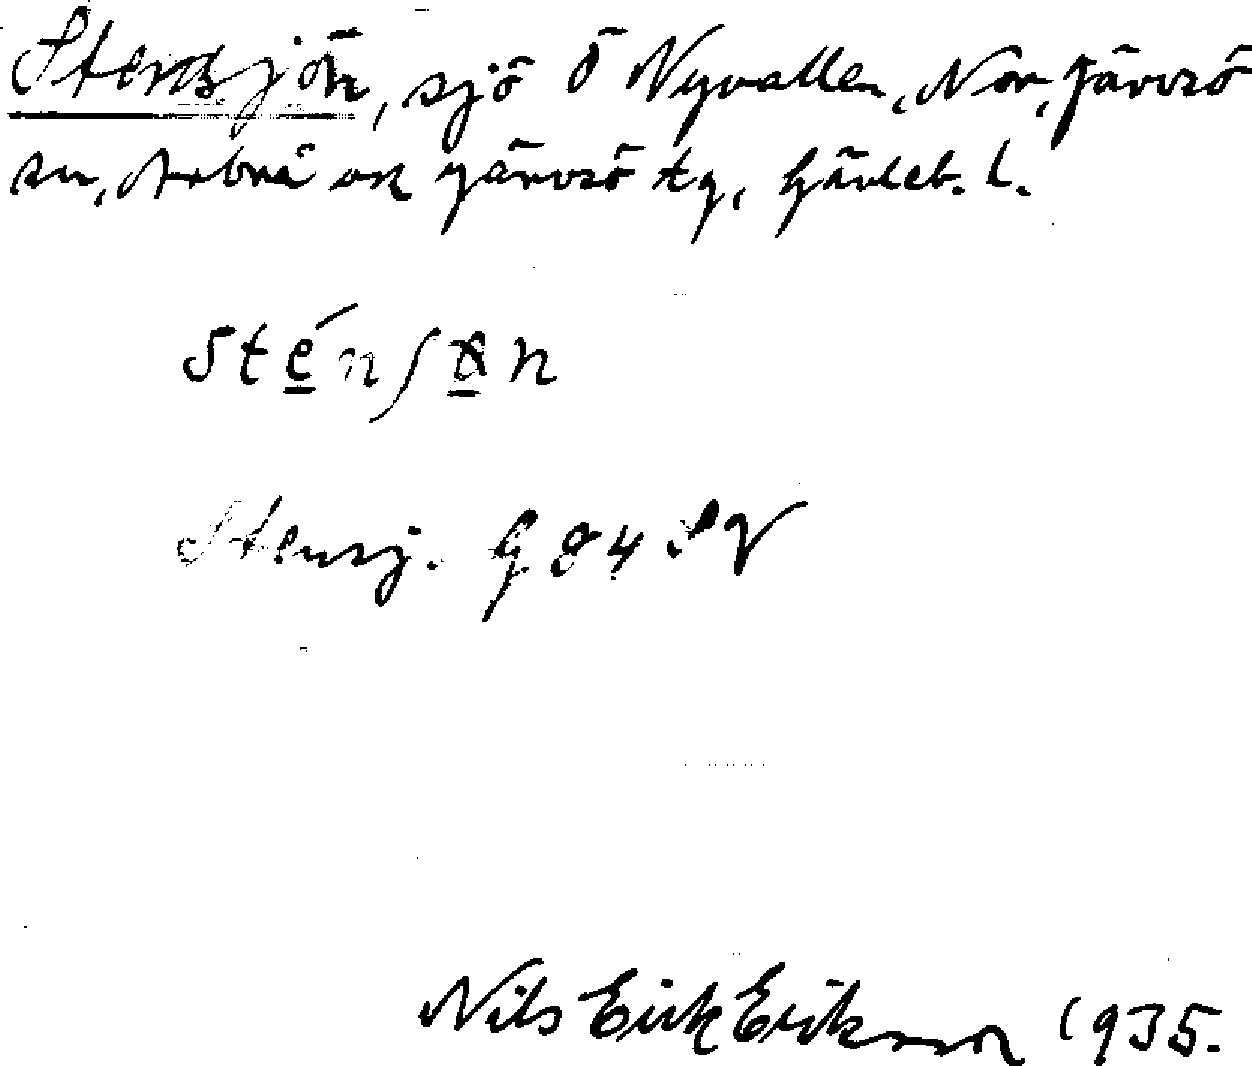 Stensjön, sjö ö Nyvallen, Nor, Järvsö
sn, Arbrå ok Järvsö tg, Gävleb. l.
Sténʃøn
Stensj. G 84 SV
Nils Erik Eriksson 1935.